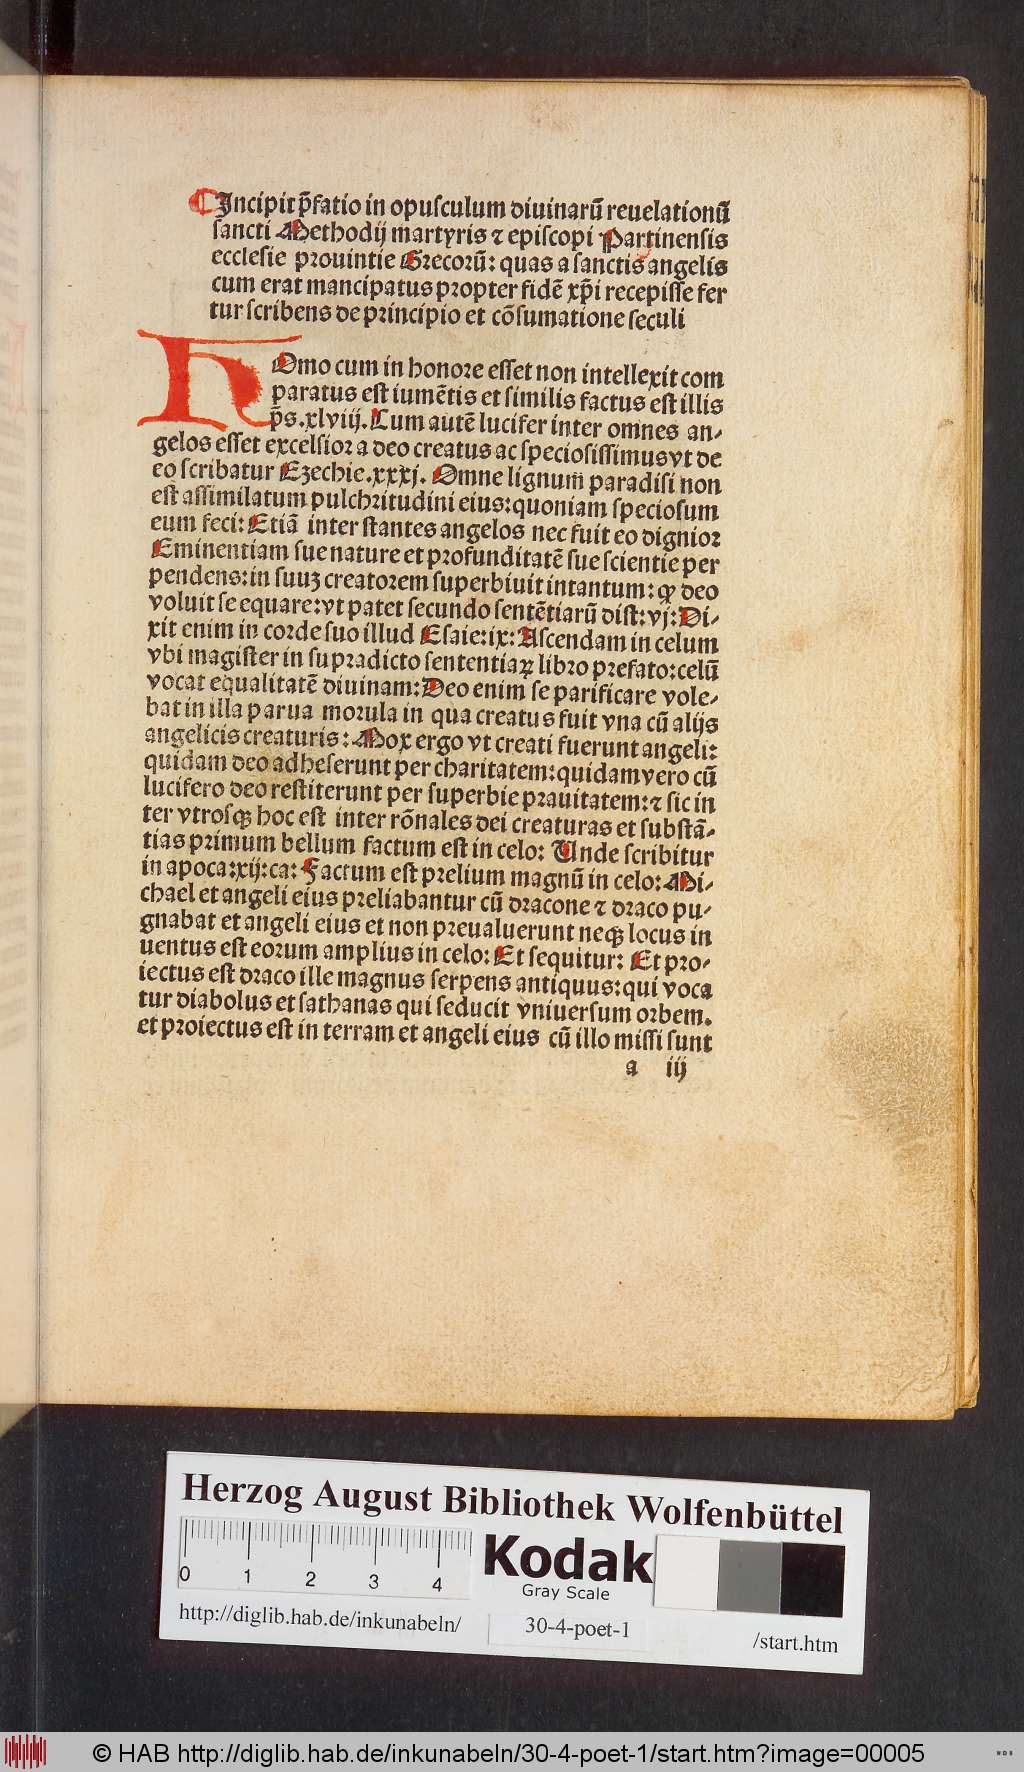 Incipit p̄fatio in opusculum diuinarū reuelationū
sancti Methodij martyris ⁊ episcopi Partinensis
ecclesie prouintie Grecorū: quas a sanctis angelis
cum erat mancipatus propter fidē xp̄i recepisse fer
tur scribens de principio et cōsumatione seculi
HOmo cum in honore esset non intellexit com
paratus est iumētis et similis factus est illis
p̄s.xlviij. Cum autē lucifer inter omnes an-
gelos esset excelsior a deo creatus ac speciosissimus vt de
eo scribatur Ezechie.xxxj. Omne lignum paradisi non
est assimilatum pulchritudini eius: quoniam speciosum
eum feci: Etiā inter stantes angelos nec fuit eo dignior
Eminentiam sue nature et profunditatē sue scientie per
pendens: in suuꝫ creatorem superbiuit intantum: ꝙ deo
voluit se equare: vt patet secundo sentētiarū dist: vj: Di-
xit enim in corde suo illud Esaie: ix: Ascendam in celum
vbi magister in supradicto sententiaꝝ libro prefato: celū
vocat equalitatē diuinam: Deo enim se parificare vole-
bat in illa parua morula in qua creatus fuit vna cū alijs
angelicis creaturis: Mox ergo vt creati fuerunt angeli:
quidam deo adheserunt per charitatem: quidam vero cū
lucifero deo restiterunt per superbie prauitatem: ⁊ sic in
ter vtrosqꝫ hoc est inter rōnales dei creaturas et substā-
tias primum bellum factum est in celo: Unde scribitur
in apoca: xij: ca: Factum est prelium magnū in celo: Mi-
chael et angeli eius preliabantur cū dracone ⁊ draco pu-
gnabat et angeli eius et non preualuerunt neqꝫ locus in
uentus est eorum amplius in celo: Et sequitur: Et pro-
iectus est draco ille magnus serpens antiquus: qui voca
tur diabolus et sathanas qui seducit vniuersum orbem.
et proiectus est in terram et angeli eius cū illo missi sunt
a iij
Herzog August Bibliothek Wolfenbüttel
0 1 2 3 4
Kodak
Gray Scale
http://diglib.hab.de/inkunabeln/
30-4-poet-1
/start.htm
© HAB http://diglib.hab.de/inkunabeln/30-4-poet-1/start.htm?image=00005